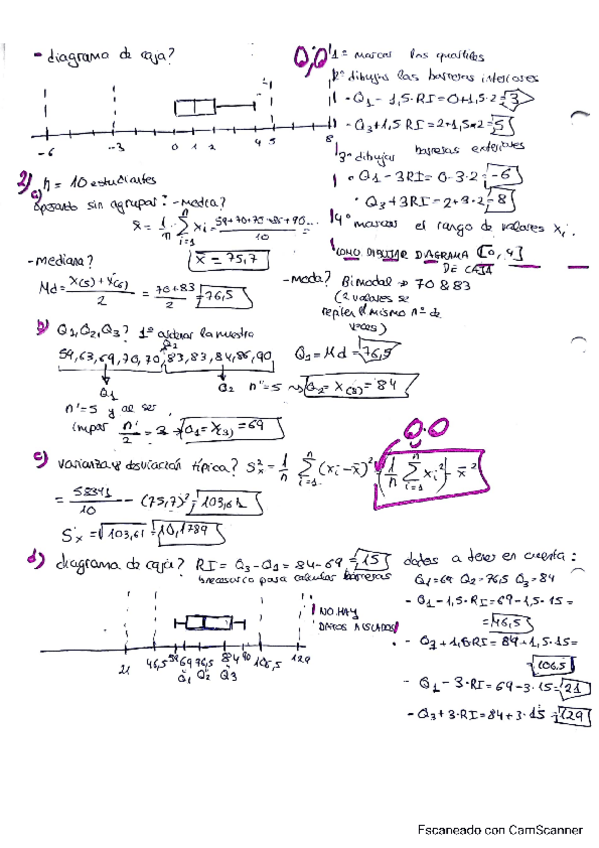 - diagrama de caja?
1º = marcar los cuartiles
2º dibujar las barreras interiores
- Q1 - 1,5·RI = 0+1,5·2 = 3
- Q3+1,5 RI = 2+1,5·2 = 5
3º dibujar barreras exteriores
- Q1 - 3RI = 0-3·2 = -6
· Q3 + 3RI = 2+3·2 = 8
4º marcamos el rango de valores xi.
CÓMO DIBUJAR DIAGRAMA [0,4]
DE CAJA
-6 -3 0 1 2 4 5 8
2) n = 10 estudiantes
a) apartado sin agrupar: - media?
x̄ = 1/n Σ i=1 n xi = 59+70+70+85+90... / 10 =
x̄ = 75,7
- mediana?
Md = X(5) + X(6) / 2 = 70+83 / 2 = 76,5
- moda? Bimodal → 70 & 83
(2 valores se
repiten el mismo nº de
veces)
b) Q1, Q2, Q3? 1º ordenar la muestra
Q2
59, 63, 69, 70, 70, 83, 83, 84, 86, 90
Q2 = Md = 76,5
Q1
Q2 n''=5 → Q2 = X(3) = 84
n'=5 y al ser
impar n'/2 = 3 → Q1 = X(3) = 69
c) varianza y desviación típica? S²x = 1/n Σ i=1 n (xi - x̄)² = (1/n Σ i=1 n xi²) - x̄²
= 58341/10 - (75,7)² = 103,61
Sx = √103,61 = 10,1789
d) diagrama de caja? RI = Q3 - Q1 = 84-69 = 15
necesario para calcular barreras
datos a tener en cuenta:
Q1=69 Q2=76,5 Q3=84
- Q1 - 1,5·RI = 69-1,5·15 =
= 46,5
- Q3 + 1,5RI = 84+1,5·15 =
= 106,5
- Q1 - 3·RI = 69-3·15 = 21
- Q3 + 3·RI = 84+3·15 = 129
NO HAY
DATOS AISLADOS
21 46,5 59 69 76,5 84 90 106,5 129
Q1 Q2 Q3
Escaneado con CamScanner